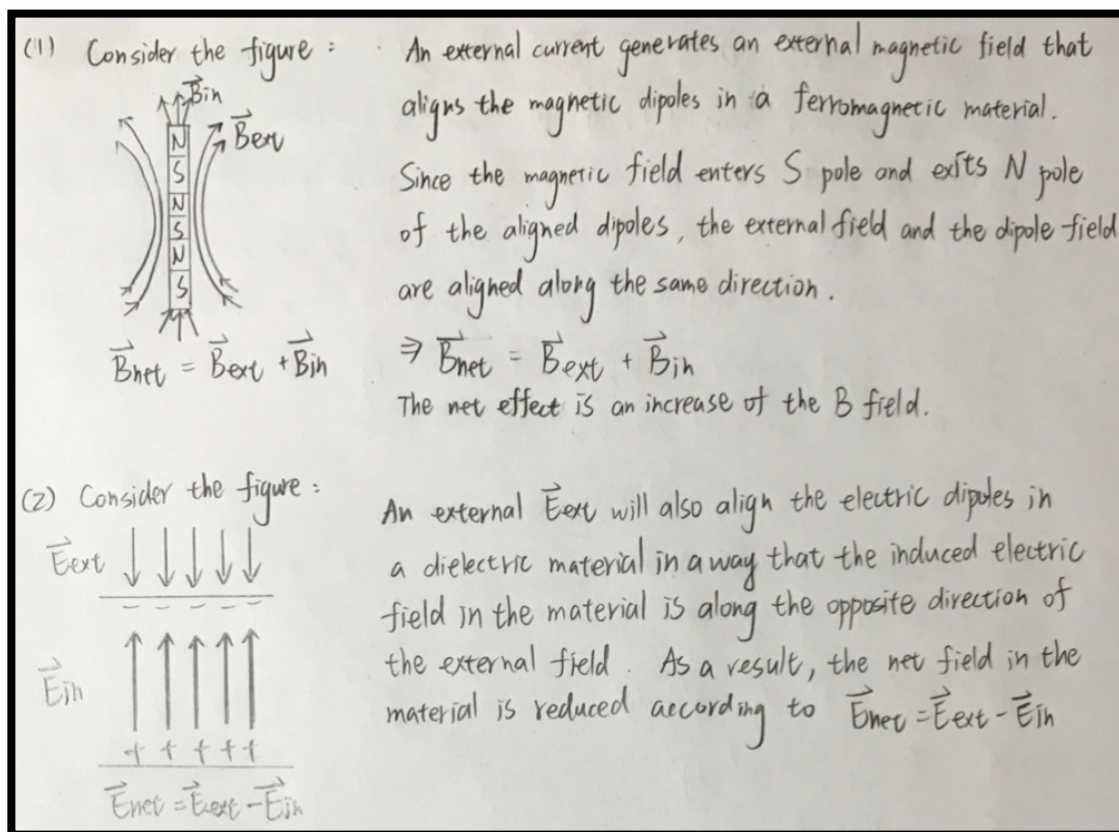 (1) Consider the figure :
An external current generates an external magnetic field that
aligns the magnetic dipoles in a ferromagnetic material.
Since the magnetic field enters S pole and exits N pole
of the aligned dipoles, the external field and the dipole field
are aligned along the same direction.
⇒ B⃗net = B⃗ext + B⃗in
The net effect is an increase of the B field.
B⃗in
B⃗ext
N
S
N
S
N
S
B⃗net = B⃗ext + B⃗in
(2) Consider the figure :
An external E⃗ext will also align the electric dipoles in
a dielectric material in a way that the induced electric
field in the material is along the opposite direction of
the external field. As a result, the net field in the
material is reduced according to E⃗net = E⃗ext - E⃗in
E⃗ext
- - - - -
E⃗in
+ + + + +
E⃗net = E⃗ext - E⃗in